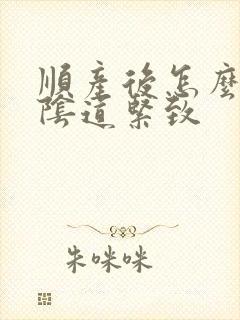 順產後怎麼
陰道緊致
朱咪咪